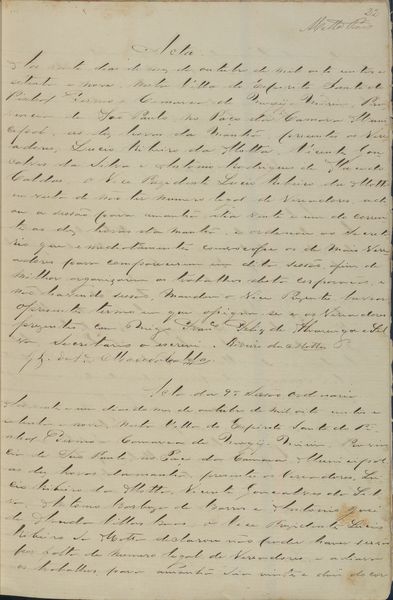 22
Motta
Acta
Aos vinte dias do mez de outubro de mil oito centos e
setenta e nove, nesta Villa do Espirito Santo do
Pinhal Termo e Comarca de Mogy Mirim, Pro
vincia de São Paulo, no Paço da Camara Muni
cipal, as dez horas da manhã, presentes os Vere
adores, Lucio Ribeiro da Motta, Vicente Gon
calves da Silva e Antonio Rodrigues de
o Vice Prezidente Lucio Ribeiro da Motta
em vista de não ter numero legal de Vereadores, adi
ou a sessão para amanhã dia vinte e um do corren
te as dez horas da manhã, e ordenou ao Secreta
rio que immediatamente convocasse os de mais Vere
adores para comparecerem na dita sessão, afim de
milhor organizarem os trabalhos desta corporação, e
não havendo sessão, mandou o Vice Prezidente lavrar
o presente termo em que assigna-se e os Vereadores
prezentes, eu
Secretario a escrevi. Ribeiro da Motta
Acta da 9ª Sessão Ordinaria
Aos vinte e um dias do mez de outubro de mil oito centos e
setenta e nove, nesta Villa do Espirito Santo do Pi
nhal Termo e Comarca de Mogy Mirim, Provin
cia de São Paulo no Paço da Camara Municipal
as dez horas da manhã, presentes os Vereadores, Lu
cio Ribeiro da Motta, Vicente Goncalves da Sil
va, Antonio Barboza de Barros e Antonio
de o Vice Prezidente Lucio
Ribeiro da Motta declarou não poder haver sessão
por falta de numero legal de Vereadores, e adiava
os trabalhos para amanhã dia vinte e dois do cor